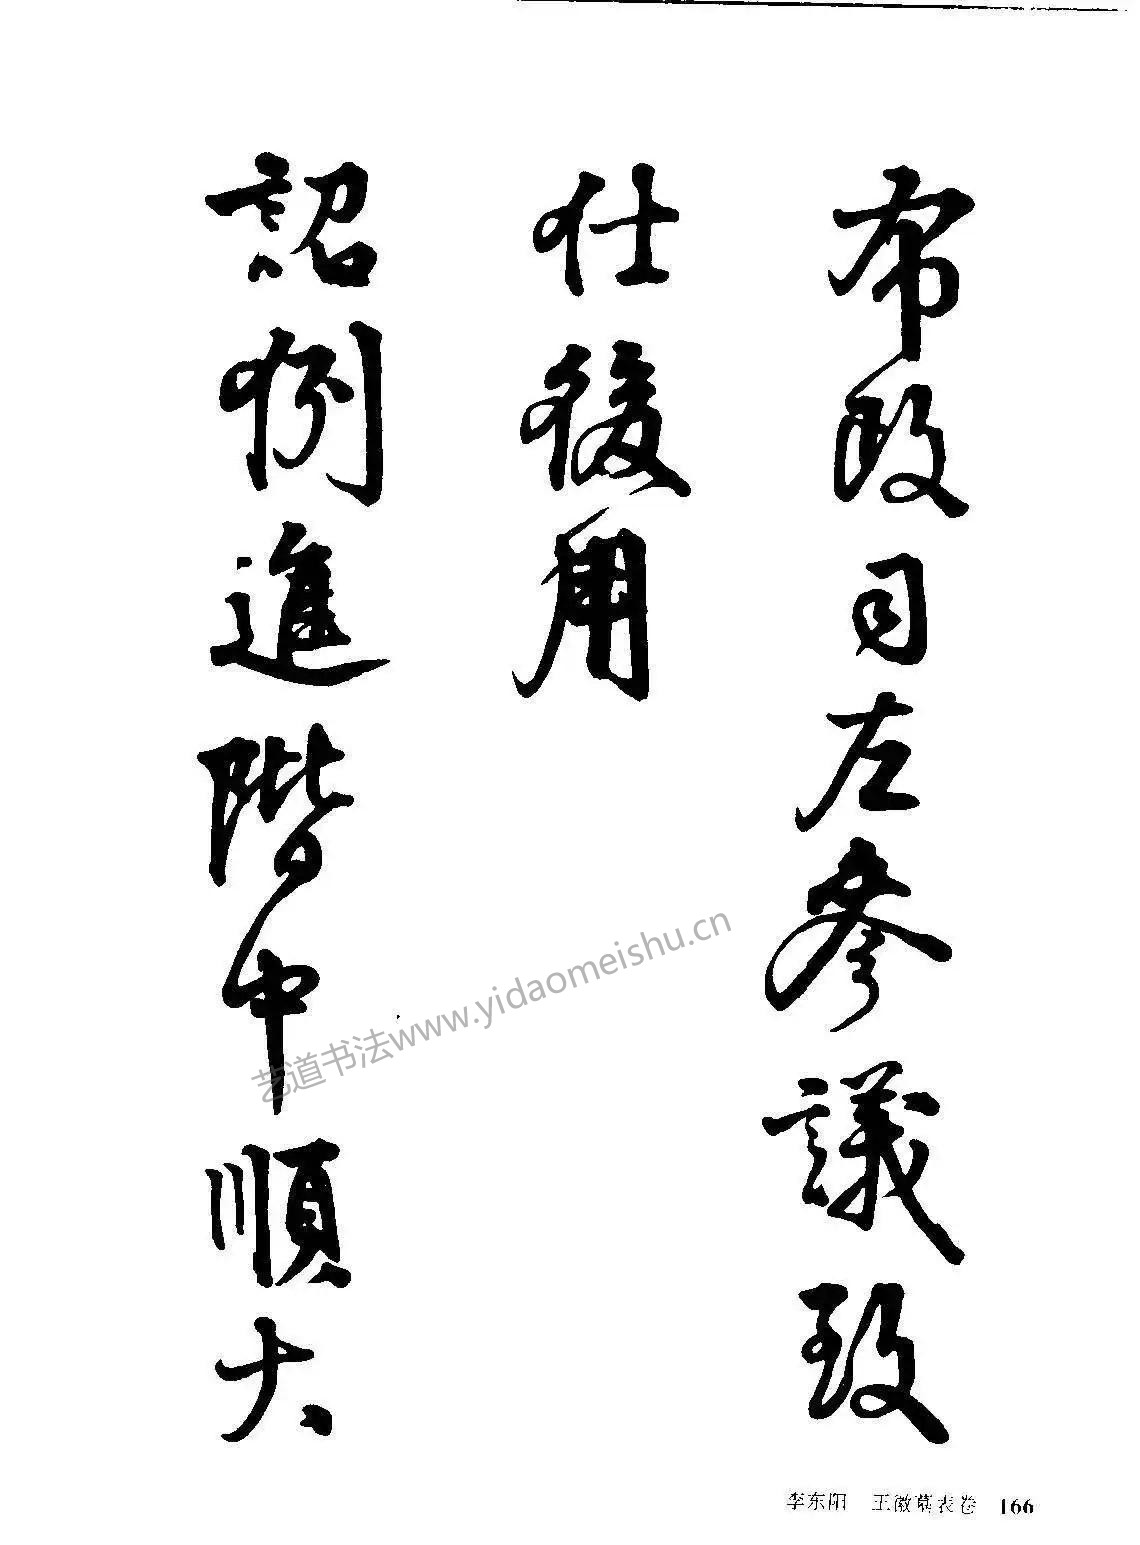 布政司左參議致
仕後用
詔例進階中順大
艺道书法www.yidaomeishu.cn
李东阳 王徽墓表卷 166